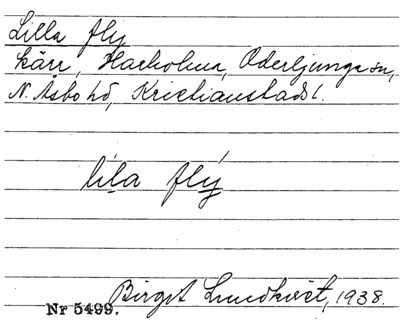 Lilla fly
kärr, Harholma, Oderljunga sn,
N. Åsbo hd, Kristianstads l.
lila flý
Birgit Lundkvist, 1938.
Nr 5499.